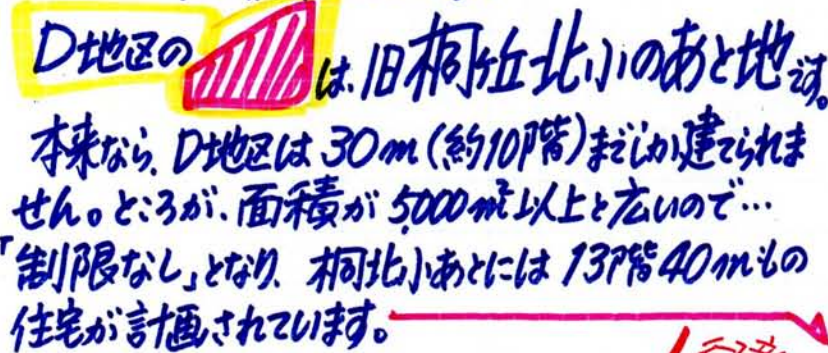 D地区の は、旧桐ヶ丘北小のあと地です。
本来なら、D地区は30m(約10階)までしか建てられま
せん。ところが、面積が5,000㎡以上と広いので…
「制限なし」となり、桐北小あとには13階40mもの
住宅が計画されています。